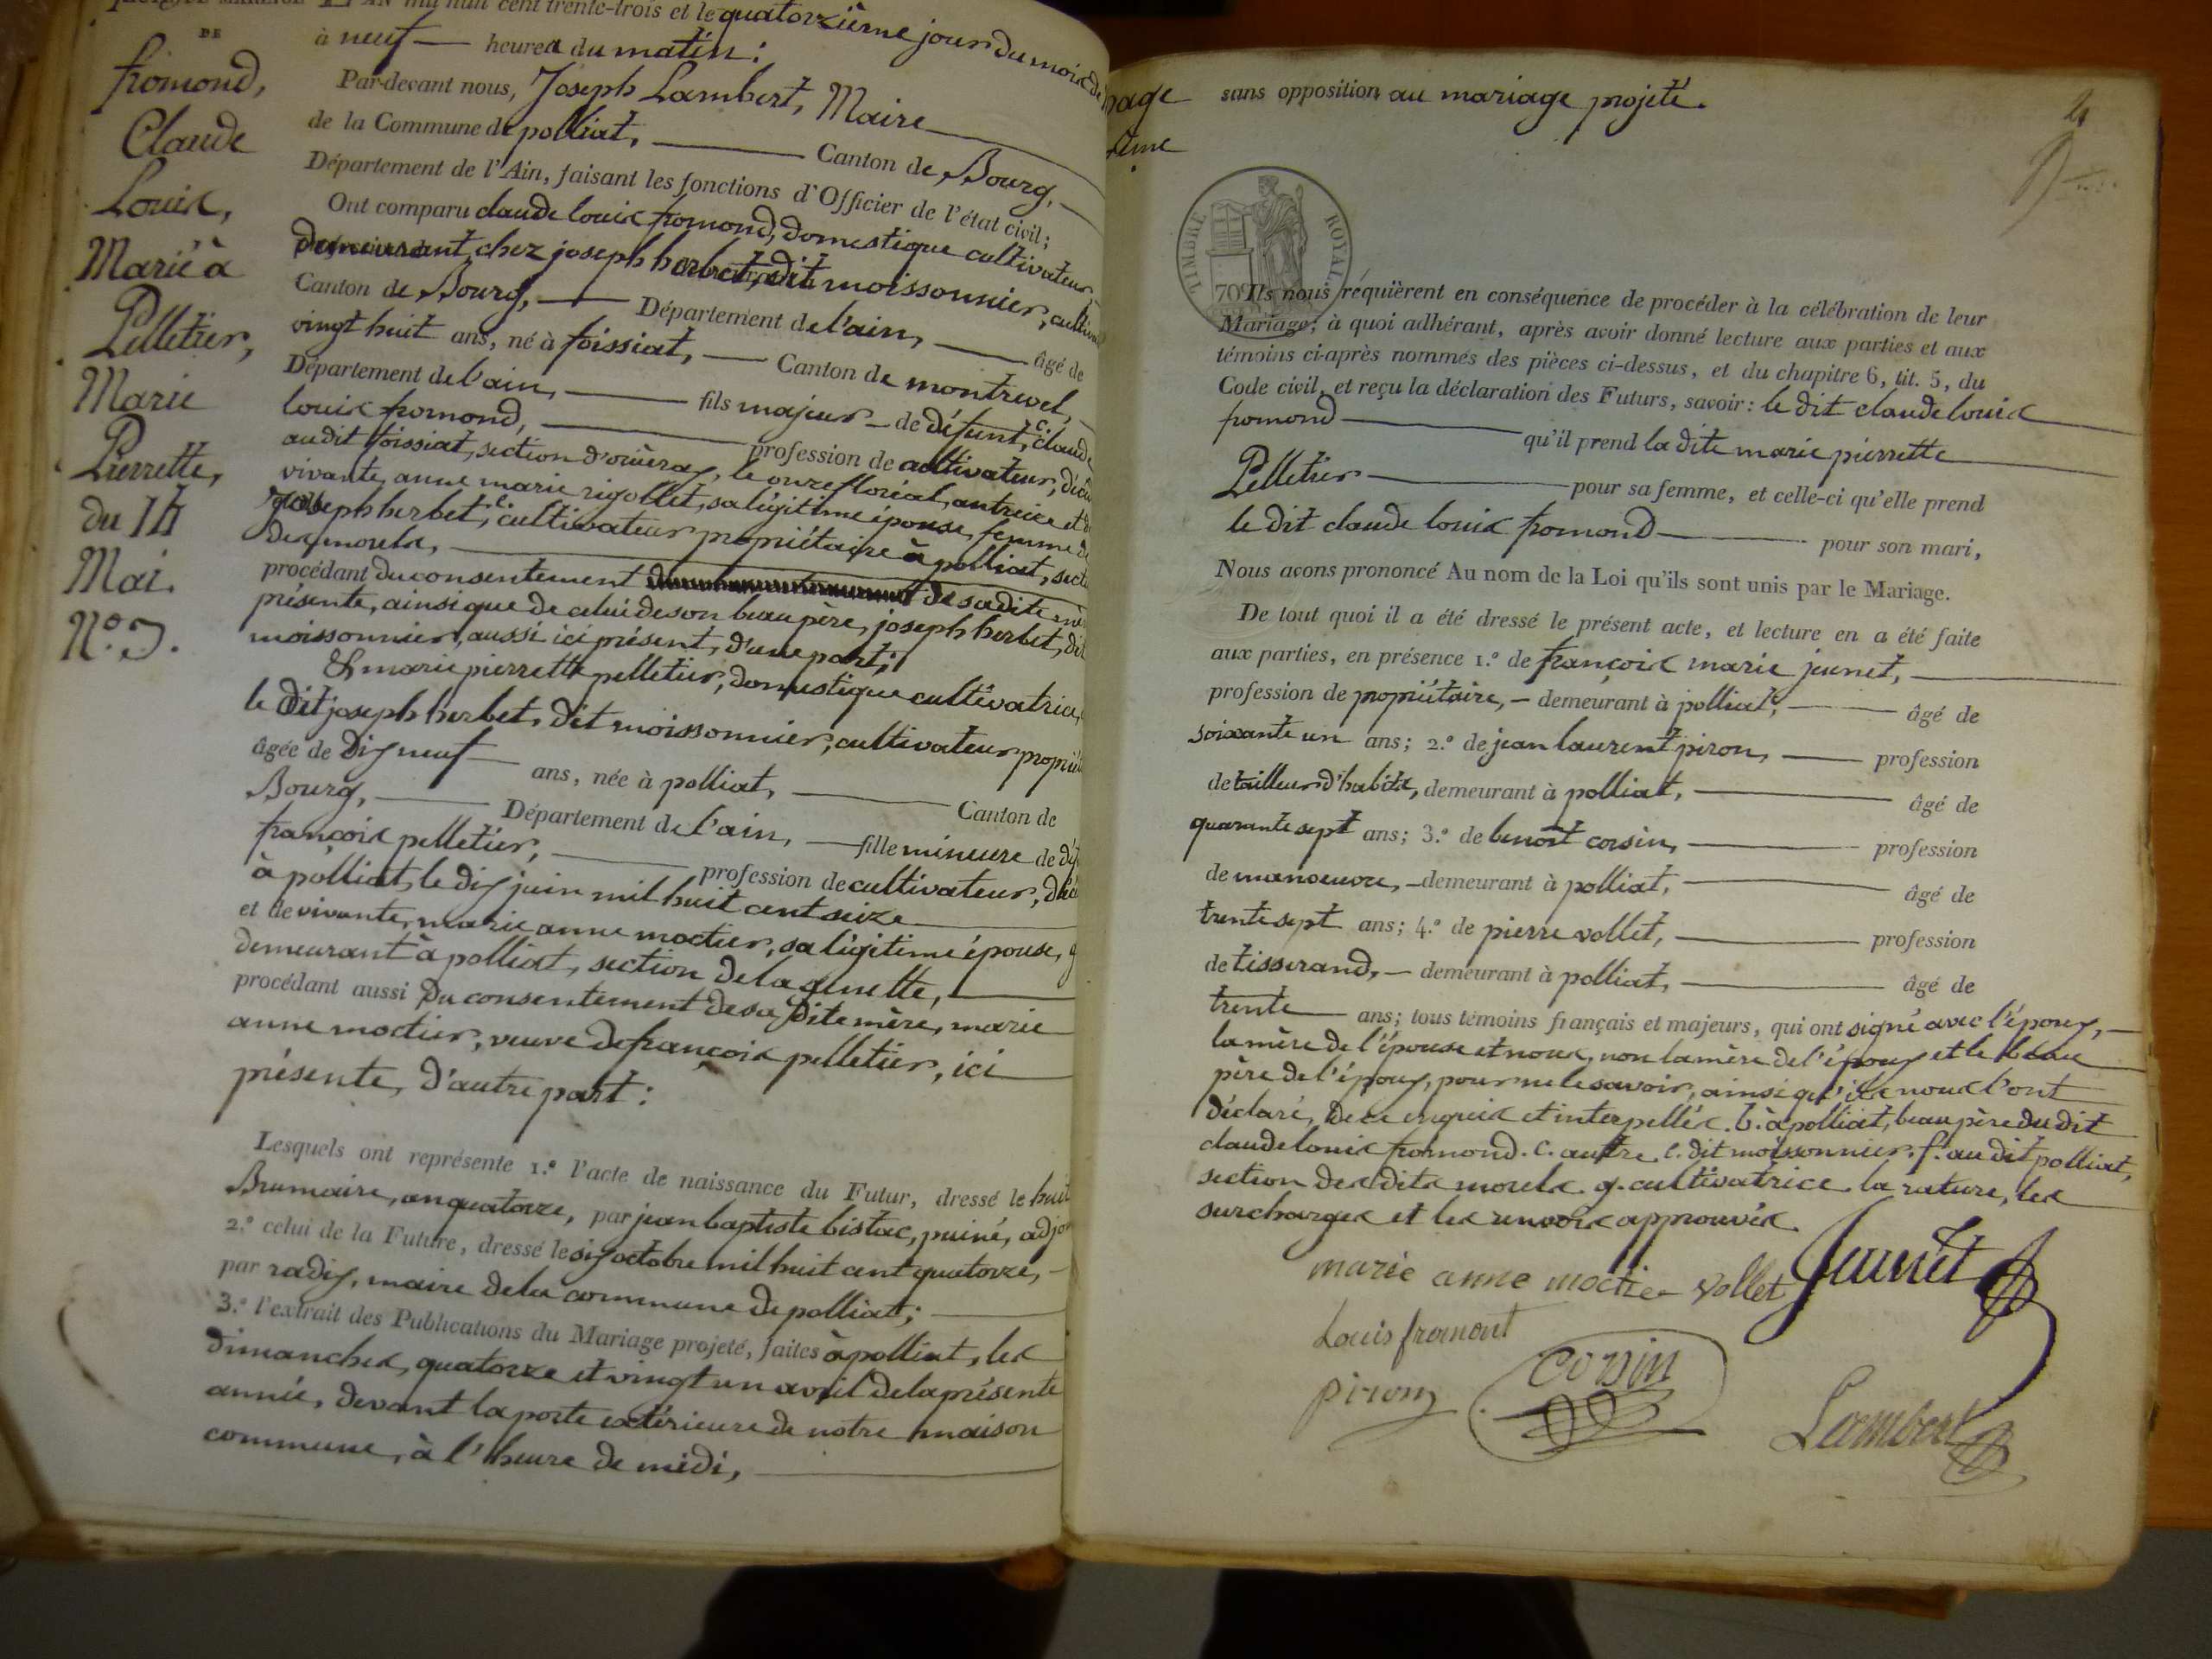 DE
fromond,
Claude
Louis,
Marié à
Pelletier,
Marie
Pierrette,
du 14
Mai.
N.º 7.
mil huit cent trente-trois et le quatorzième jour du mois de
à neuf heures du matin:
Par-devant nous, Joseph Lambert, Maire
de la Commune de polliat, Canton de Bourg,
Département de l'Ain, faisant les fonctions d'Officier de l'état civil;
Ont comparu claude louis fromond, domestique cultivateur
demeurant chez joseph herbet, dit moissonnier,
Canton de Bourg, Département de l'ain, âgé de
vingt huit ans, né à foissiat, Canton de montrevel,
Département de l'ain, fils majeur de défunt, claude
louis fromond, profession de cultivateur,
audit foissiat, section d'ouïeray, le onze floréal, an treize et de
vivante, anne marie rigollet, sa légitime épouse, femme de
joseph herbet, cultivateur propriétaire à polliat,
des morels,
procédant du consentement de sa dite
présente, ainsi que de celui de son beau père, joseph herbet, dit
moissonnier, aussi ici présent, d'une part;
Et marie pierrette pelletier, domestique cultivatrice,
le dit joseph herbet, dit moissonnier, cultivateur
âgée de dix neuf ans, née à polliat, Canton de
Bourg, Département de l'ain, fille mineure de
françois pelletier, profession de cultivateur,
à polliat, le dix juin mil huit cent seize
et de vivante, marie anne moctier, sa légitime épouse, g
demeurant à polliat, section de la genette,
procédant aussi du consentement de sa dite mère, marie
anne moctier, veuve de françois pelletier, ici
présente, d'autre part:
Lesquels ont représente 1.º l'acte de naissance du Futur, dressé le huit
Brumaire, an quatorze, par jean baptiste bistac, puiné,
2.º celui de la Future, dressé le six octobre mil huit cent quatorze,
par radix, maire de la commune de polliat;
3.º l'extrait des Publications du Mariage projeté, faites à polliat, les
dimanches, quatorze et vingt un avril de la présente
année, devant la porte extérieure de notre maison
commune, à l'heure de midi,
sans opposition au mariage projeté.
TIMBRE ROYAL
70
Ils nous réquièrent en conséquence de procéder à la célébration de leur
Mariage; à quoi adhérant, après avoir donné lecture aux parties et aux
témoins ci-après nommés des pièces ci-dessus, et du chapitre 6, tit. 5, du
Code civil, et reçu la déclaration des Futurs, savoir: le dit claude louis
fromond qu'il prend la dite marie pierrette
Pelletier pour sa femme, et celle-ci qu'elle prend
le dit claude louis fromond pour son mari,
Nous avons prononcé Au nom de la Loi qu'ils sont unis par le Mariage.
De tout quoi il a été dressé le présent acte, et lecture en a été faite
aux parties, en présence 1.º de françois marie jeunet,
profession de propriétaire, demeurant à polliat, âgé de
soixante un ans; 2.º de jean laurent piron, profession
de tailleur d'habits, demeurant à polliat, âgé de
quarante sept ans; 3.º de benoît corsin, profession
de manoeuvre, demeurant à polliat, âgé de
trente sept ans; 4.º de pierre vollet, profession
de tisserand, demeurant à polliat, âgé de
trente ans; tous témoins français et majeurs, qui ont signé avec l'époux,
la mère de l'épouse et nous, non la mère de l'époux et le beau
père de l'époux, pour ne le savoir, ainsi qu'ils nous l'ont
déclaré, de ce enquis et interpellés. b. à polliat, beau père du dit
claude louis fromond. c. autre. e. dit moissonnier. f. au dit polliat,
section des dits morels. g. cultivatrice. la rature, les
surcharges et les renvois approuvés.
marie anne moctier vollet Jeunet
Louis fromont
piron corsin
Lambert